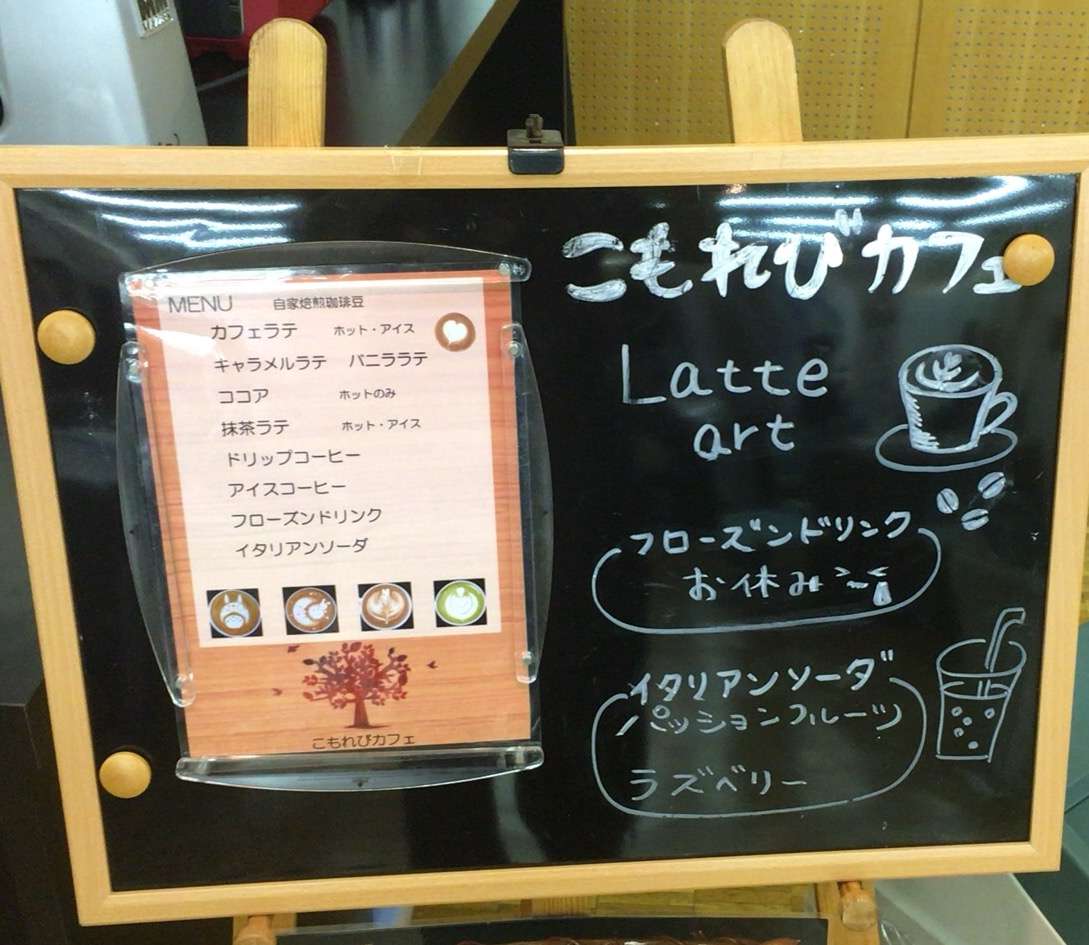 MENU 自家焙煎珈琲豆
カフェラテ ホット・アイス
キャラメルラテ バニララテ
ココア ホットのみ
抹茶ラテ ホット・アイス
ドリップコーヒー
アイスコーヒー
フローズンドリンク
イタリアンソーダ
こもれびカフェ
こもれびカフェ
Latte
art
フローズンドリンク
お休み
イタリアンソーダ
パッションフルーツ
ラズベリー